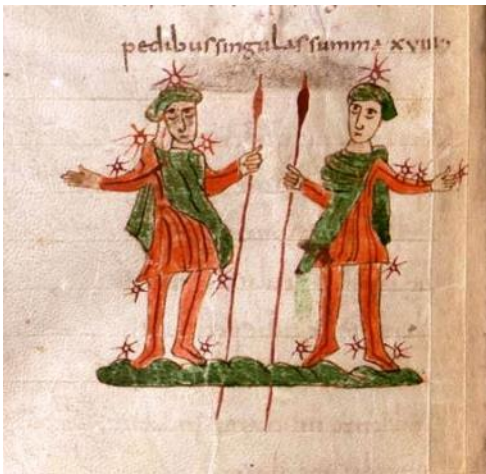 pedibus singulas summa xviiii